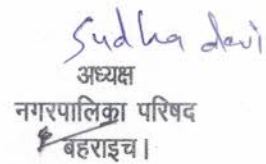 Sudha devi
अध्यक्ष
नगरपालिका परिषद
बहराइच।